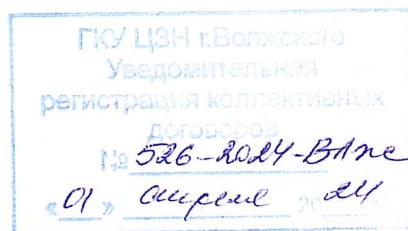 ГКУ ЦЗН г.Волжского
Уведомительная
регистрация коллективных
договоров
№ 526-2024-ВЛж
«01» апреля 2024